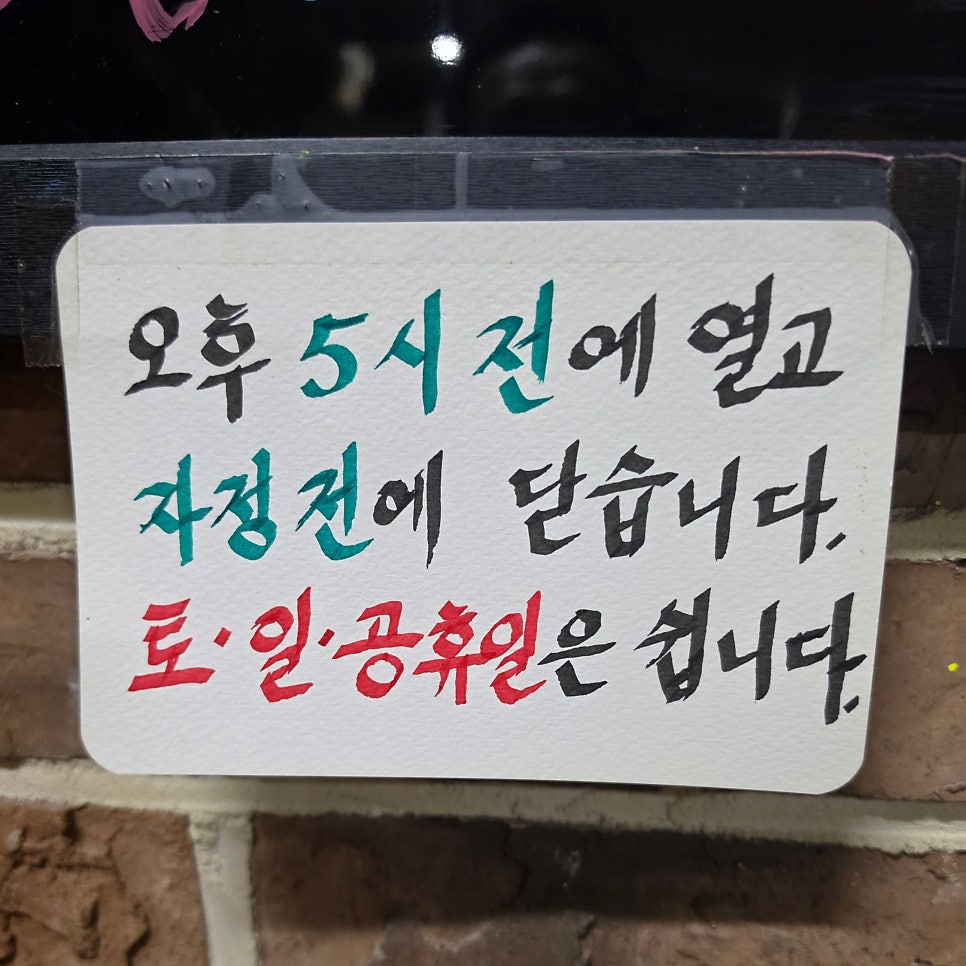 오후 5시 전에 열고
자정 전에 닫습니다.
토·일·공휴일은 쉽니다.